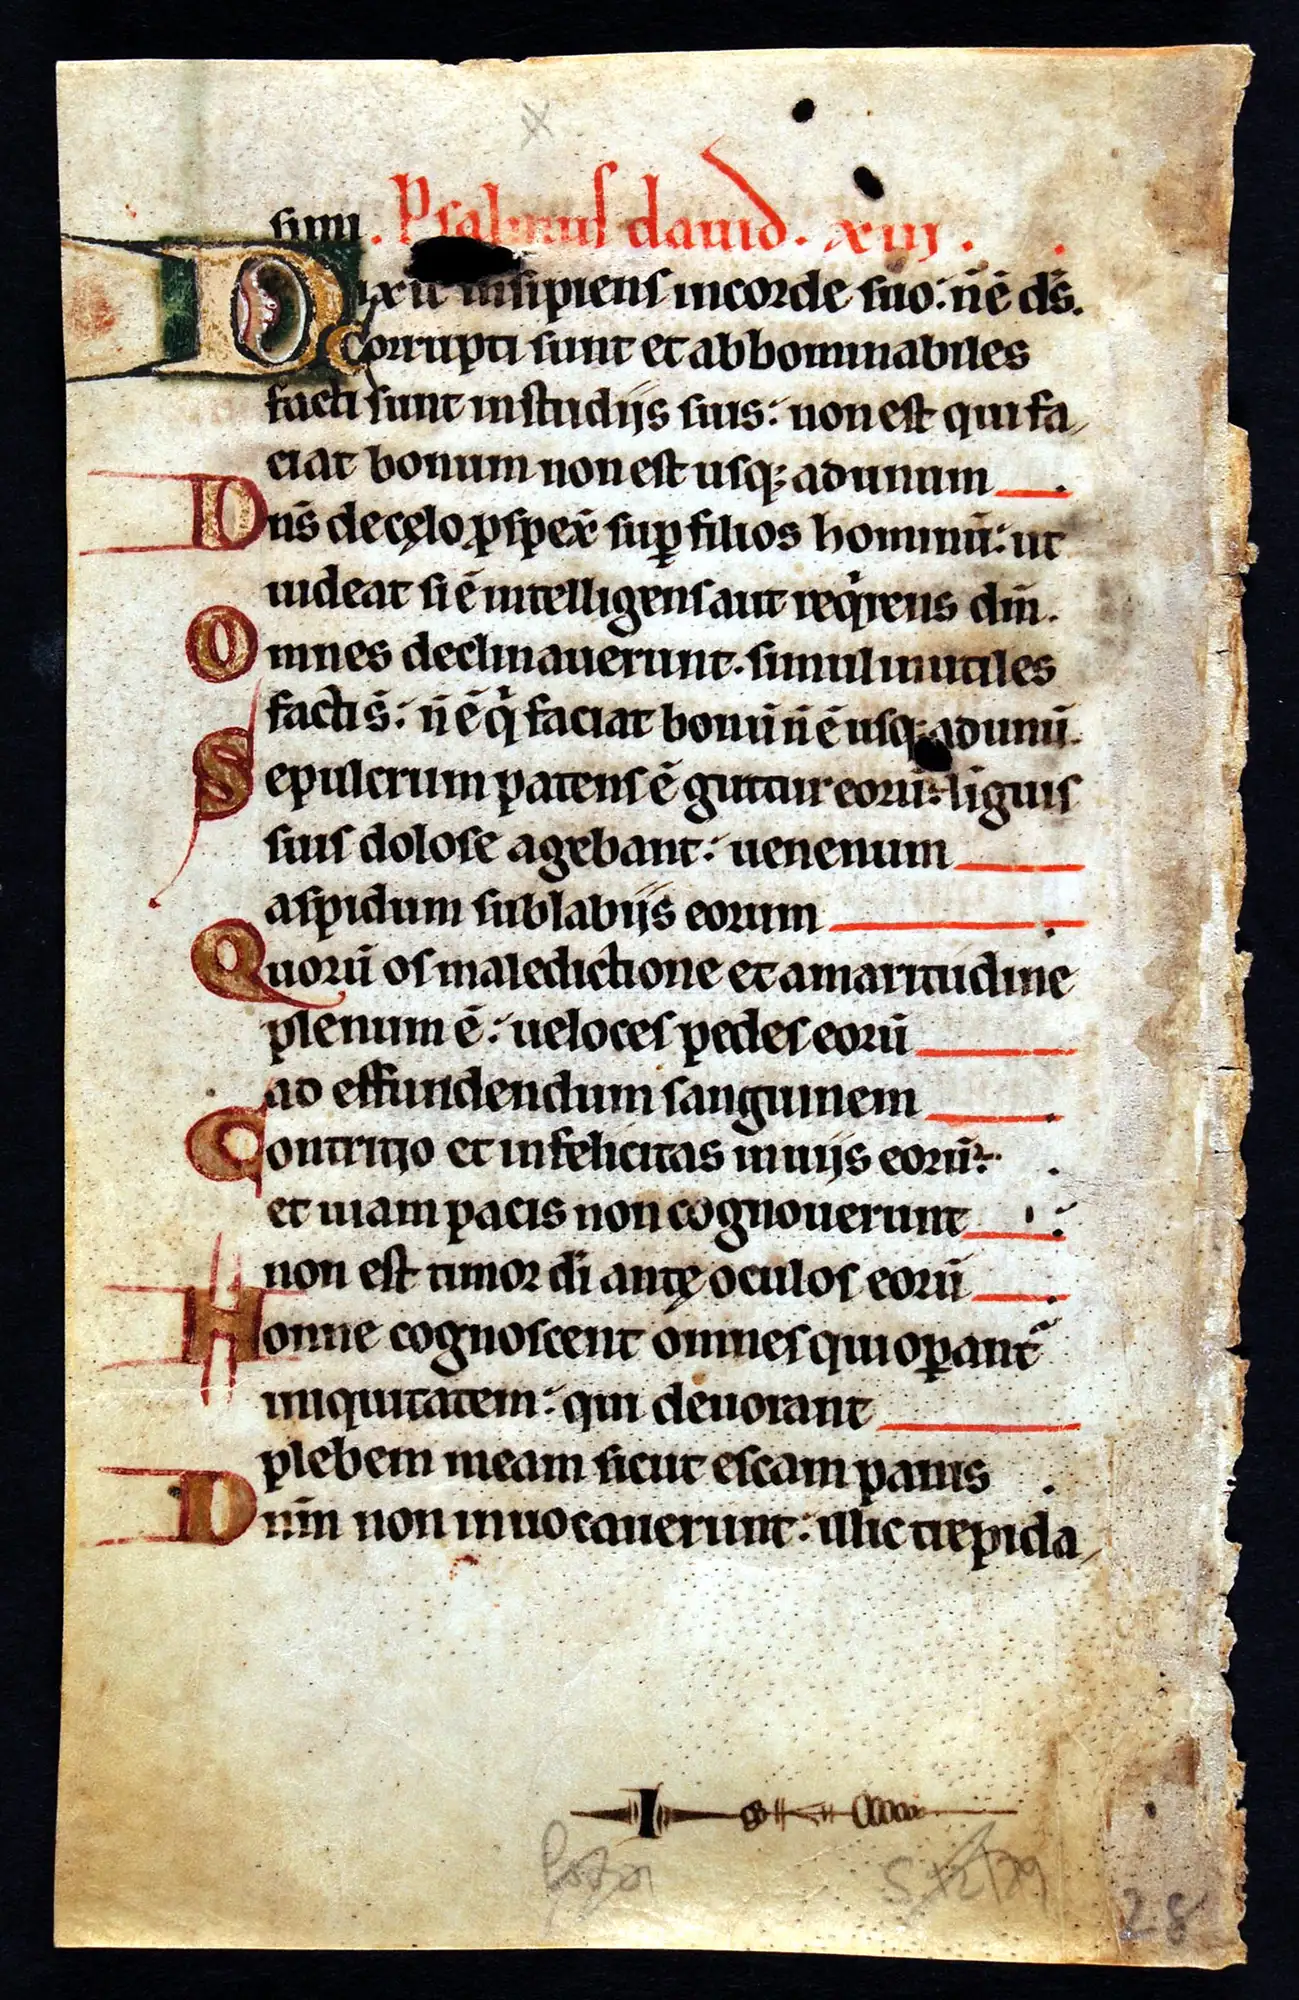 sum. Psalmus dauid. xiij.
Dixit insipiens in corde suo: nē ds̄.
Corrupti sunt et abbominabiles
facti sunt in studijs suis: non est qui fa
ciat bonum non est usq; ad unum.
Dn̄s de cęlo ꝓspex̄ sup̲ filios hominū: ut
uideat si ē intelligens aut reqͥrens dm̄.
Omnes declinauerunt. simul inutiles
facti s̄: n̄ ē qͥ faciat bonū n̄ ē usq; ad unū.
Sepulcrum patens ē guttur eorū: liguis
suis dolose agebant: uenenum
aspidum sub labijs eorum.
Quorū os maledictione et amaritudine
plenum ē: ueloces pedes eorū
ad effundendum sanguinem.
Contritio et infelicitas in uijs eorū:.
et uiam pacis non cognouerunt:
non est timor dī antę oculos eorū.
Honne cognoscent omnes qui oꝑant᷑
iniquitatem: qui deuorant
plebem meam sicut escam panis.
Dnīn non inuocauerunt: illic trepida
I
28